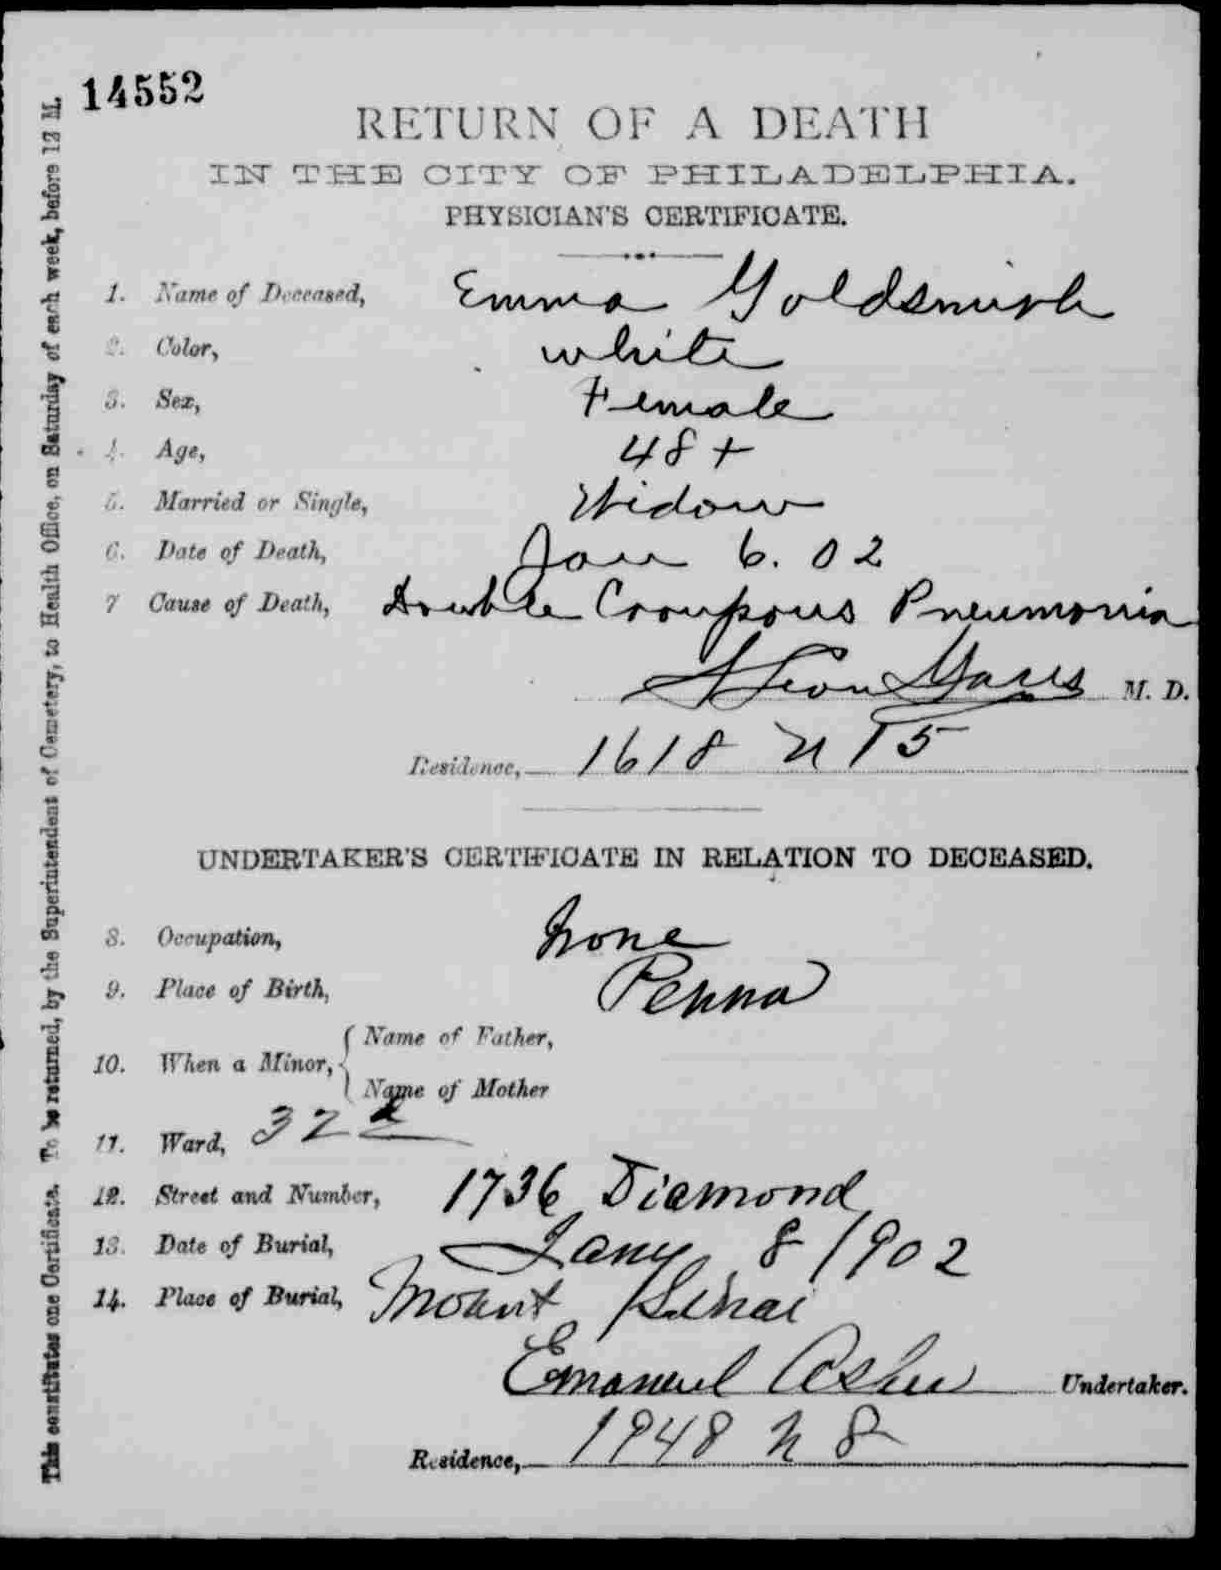 14552
RETURN OF A DEATH
IN THE CITY OF PHILADELPHIA.
PHYSICIAN'S CERTIFICATE.
1. Name of Deceased, Emma Goldsmith
2. Color, white
3. Sex, Female
4. Age, 48 +
5. Married or Single, Widow
6. Date of Death, Jan 6. 02
7 Cause of Death, Double Croupous Pneumonia
Leon M. D.
Residence, 1618 N 15
UNDERTAKER'S CERTIFICATE IN RELATION TO DECEASED.
8. Occupation, None
9. Place of Birth, Penna
10. When a Minor, { Name of Father,
Name of Mother
11. Ward, 32d
12. Street and Number, 1736 Diamond
13. Date of Burial, Jany 8 1902
14. Place of Burial, Mount Sinai
Emanuel Asher Undertaker.
Residence, 1948 N 8
This constitutes one Certificate. To be returned, by the Superintendent of Cemetery, to Health Office, on Saturday of each week, before 12 M.